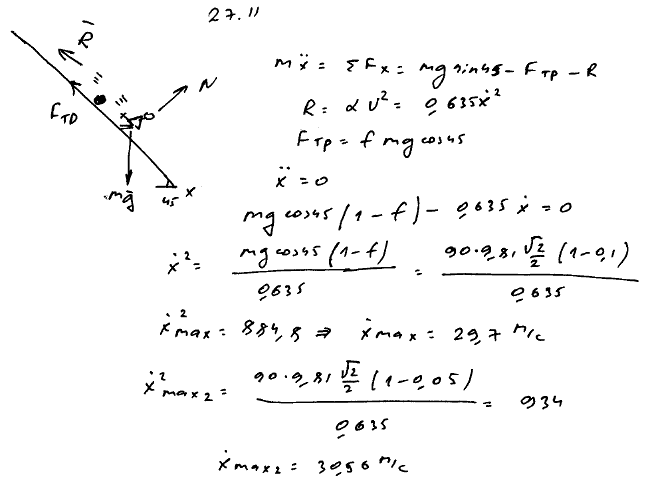 27.11
R̄
N
Fтр
mḡ
45 x
mẍ = ΣFx = mg sin45 - Fтр - R
R = αv² = 0,635ẋ²
Fтр = f mg cos45
ẍ = 0
mg cos45 (1 - f) - 0,635 ẋ = 0
ẋ² = mg cos45 (1-f) / 0,635 = 90·9,81 √2/2 (1-0,1) / 0,635
ẋ²max = 884,8 ⇒ ẋmax = 29,7 м/с
ẋ²max2 = 90·9,81 √2/2 (1-0,05) / 0,635 = 934
ẋmax2 = 30,56 м/с